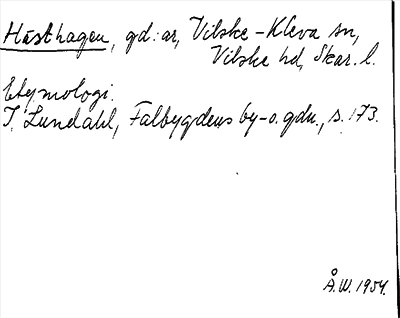 Hästhagen, gd:ar, Vilske-Kleva sn,
Vilske hd, Skar. l.
Etymologi.
I. Lundahl, Falbygdens by- o. gdn., s. 173.
Å.W. 1954.